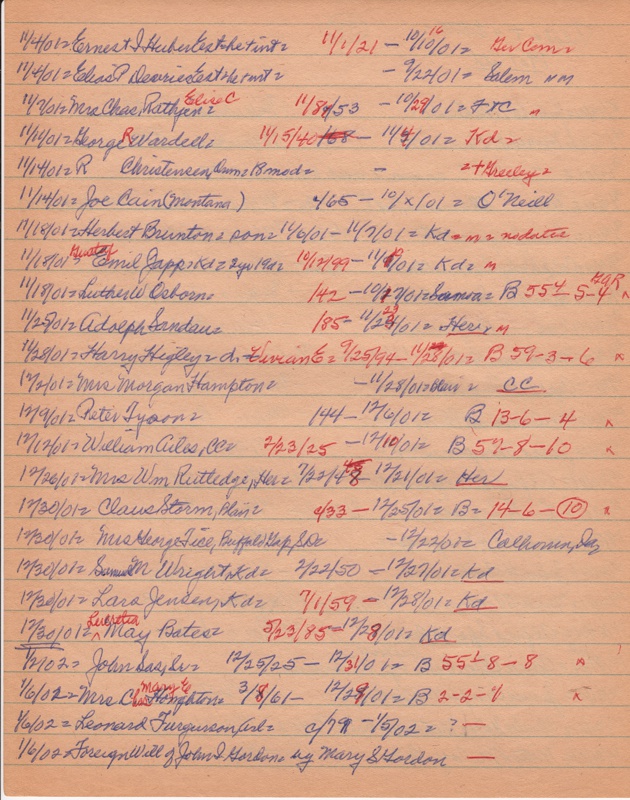 11/4/01= Ernest I Huber Est he + int = 11/1/21 - 10/10/01= Ger Com =
11/4/01= Elias P Est he + int = - 9/22/01= Salem
11/7/01= Mrs Chas, Rathjen = Elise C 11/8/53 - 10/29/01= FTC m
11/14/01= George R Wardell= 11/15/40 - 11/4/01= Kd=
11/14/01= R Christensen, B mod= - =+Greeley=
11/14/01= Joe Cain (Montana) /65 - 10/x/01= O'Neill
11/18/01= Herbert Brunton= son= 11/6/01 - 11/7/01= Kd= m= no dates
11/18/01= Gustof Emil Japp= Kd= 2 yr 19d= 10/12/99 - 11/ /01= Kd= m
11/18/01= Luther W Osborn= /42 - 10/17/01= Samoa= B 55½ 5-4 GAR x
11/25/01= Adolph Sandau= /85 - 11/23/01= Her x m
11/28/01= Harry Higley= d. Vivian E= 9/25/94 - 11/28/01= B 59-3-6 x
12/2/01= Mrs Morgan Hampton= - 11/28/01= = CC
12/9/01= Peter Tyson= /44 - 12/6/01= B 13-6-4 x
12/12/01= William Ailes, CC= 2/23/25 - 12/10/01= B 57-8-10 x
12/26/01= Mrs Wm Rutledge, Her= 7/22/48 - 12/21/01= Her
12/30/01= Claus Storm, Blair= c/33 - 12/25/01= B= 14-6-10 x
12/30/01= Mrs George Tice, Buffalo Gap, S.D= - 12/22/01= Calhoun,
12/30/01= Samuel M Wright, Kd= 2/22/50 - 12/27/01= Kd
12/30/01= Lars Jensen, Kd= 7/1/59 - 12/28/01= Kd
12/30/01= Lucretia May Bates= 5/23/85 - 12/28/01= Kd
1/2/02= John Sas, Sr= 12/25/25 - 12/31/01= B 55½ 8-8 x
1/6/02= Mrs Chas Mary E Houghton= 3/8/61 - 12/29/01= B 2-2-1 x
1/6/02= Leonard Furguson, Arl= c/79 - 1/5/02= ? —
1/6/02= Foreign Will of John I Gordon= by Mary S Gordon —